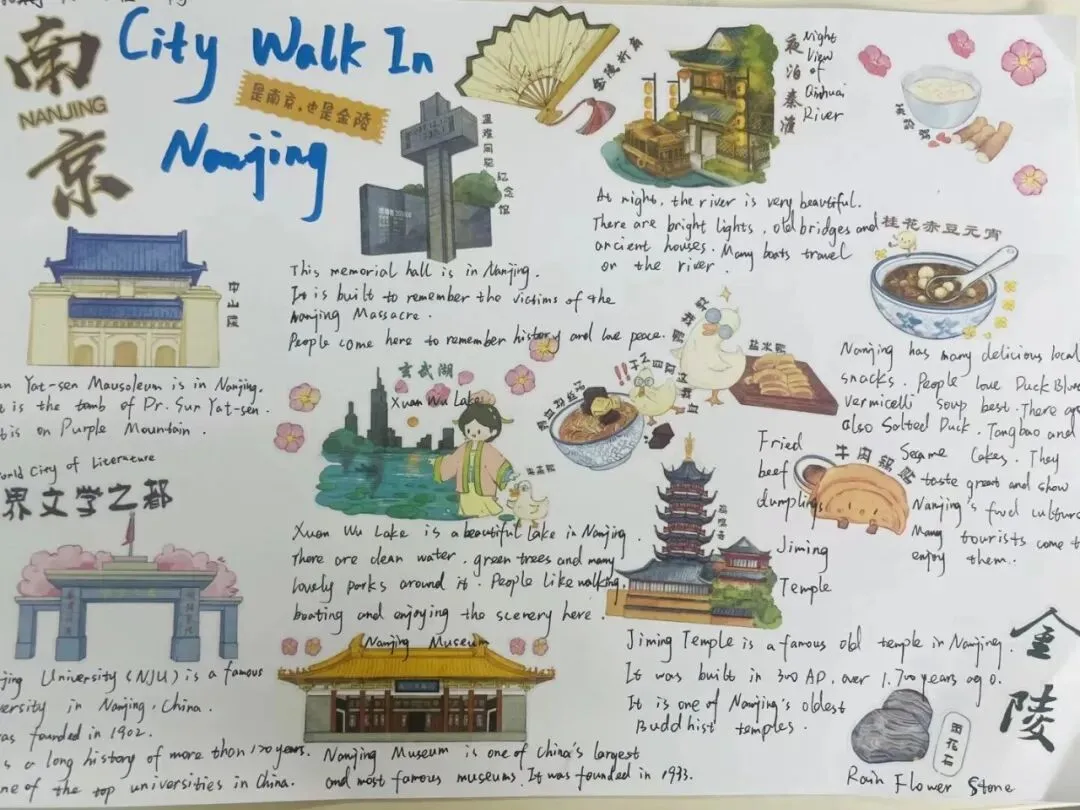 南京
NANJING
City Walk In
Nanjing
是南京,也是金陵
遇难同胞纪念馆
金陵折扇
夜泊秦淮
Night
View
of
Qinhuai
River
At night, the river is very beautiful.
There are bright lights, old bridges and
ancient houses. Many boats travel
on the river.
桂花赤豆元宵
中山陵
This memorial hall is in Nanjing.
It is built to remember the victims of the
Nanjing Massacre.
People come here to remember history and love peace.
Yat-sen Mausoleum is in Nanjing.
is the tomb of Dr. Sun Yat-sen.
is on Purple Mountain.
玄武湖
Xuan Wu Lake
盐水鸭
Nanjing has many delicious local
snacks. People love Duck Bloo
vermicelli soup best. There are
also Salted Duck, Tangbao and
Sesame Cakes. They
taste great and show
Nanjing's food culture
Many tourists come t
enjoy them..
Fried
beef
dumplings
牛肉锅贴
City of Literature
界文学之都
Xuan Wu Lake is a beautiful lake in Nanjing.
There are clean water, green trees and many
lovely parks around it. People like walking,
boating and enjoying the scenery here.
鸡鸣寺
Jiming
Temple
Jiming Temple is a famous old temple in Nanjing.
It was built in 300 AD, over 1,700 years ago.
It is one of Nanjing's oldest
Buddhist temples.
jing University (NJU) is a famous
versity in Nanjing, China.
was founded in 1902.
s a long history of more than 120 years.
ne of the top universities in China.
Nanjing Museum
Nanjing Museum is one of China's largest
and most famous museums. It was founded in 1933.
金陵
雨花石
Rain Flower Stone